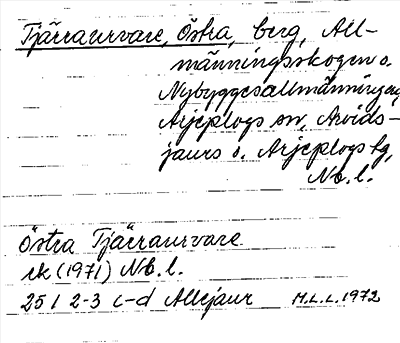 Tjärraurvare, Östra, berg, All-
männingsskogen o.
Nybyggesallmänningen,
Arjeplogs sn, Arvids-
jaurs o. Arjeplogs tg,
Nb. l.
Östra Tjärraurvare
rk (1971) Nb. l.
25 I 2-3 c-d Allejaur M.L.L. 1972